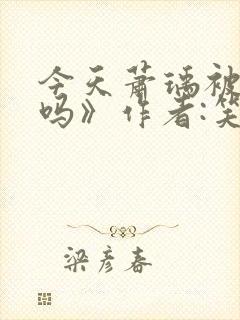 今天萧瑀被
吗》作者:笑
梁彦春